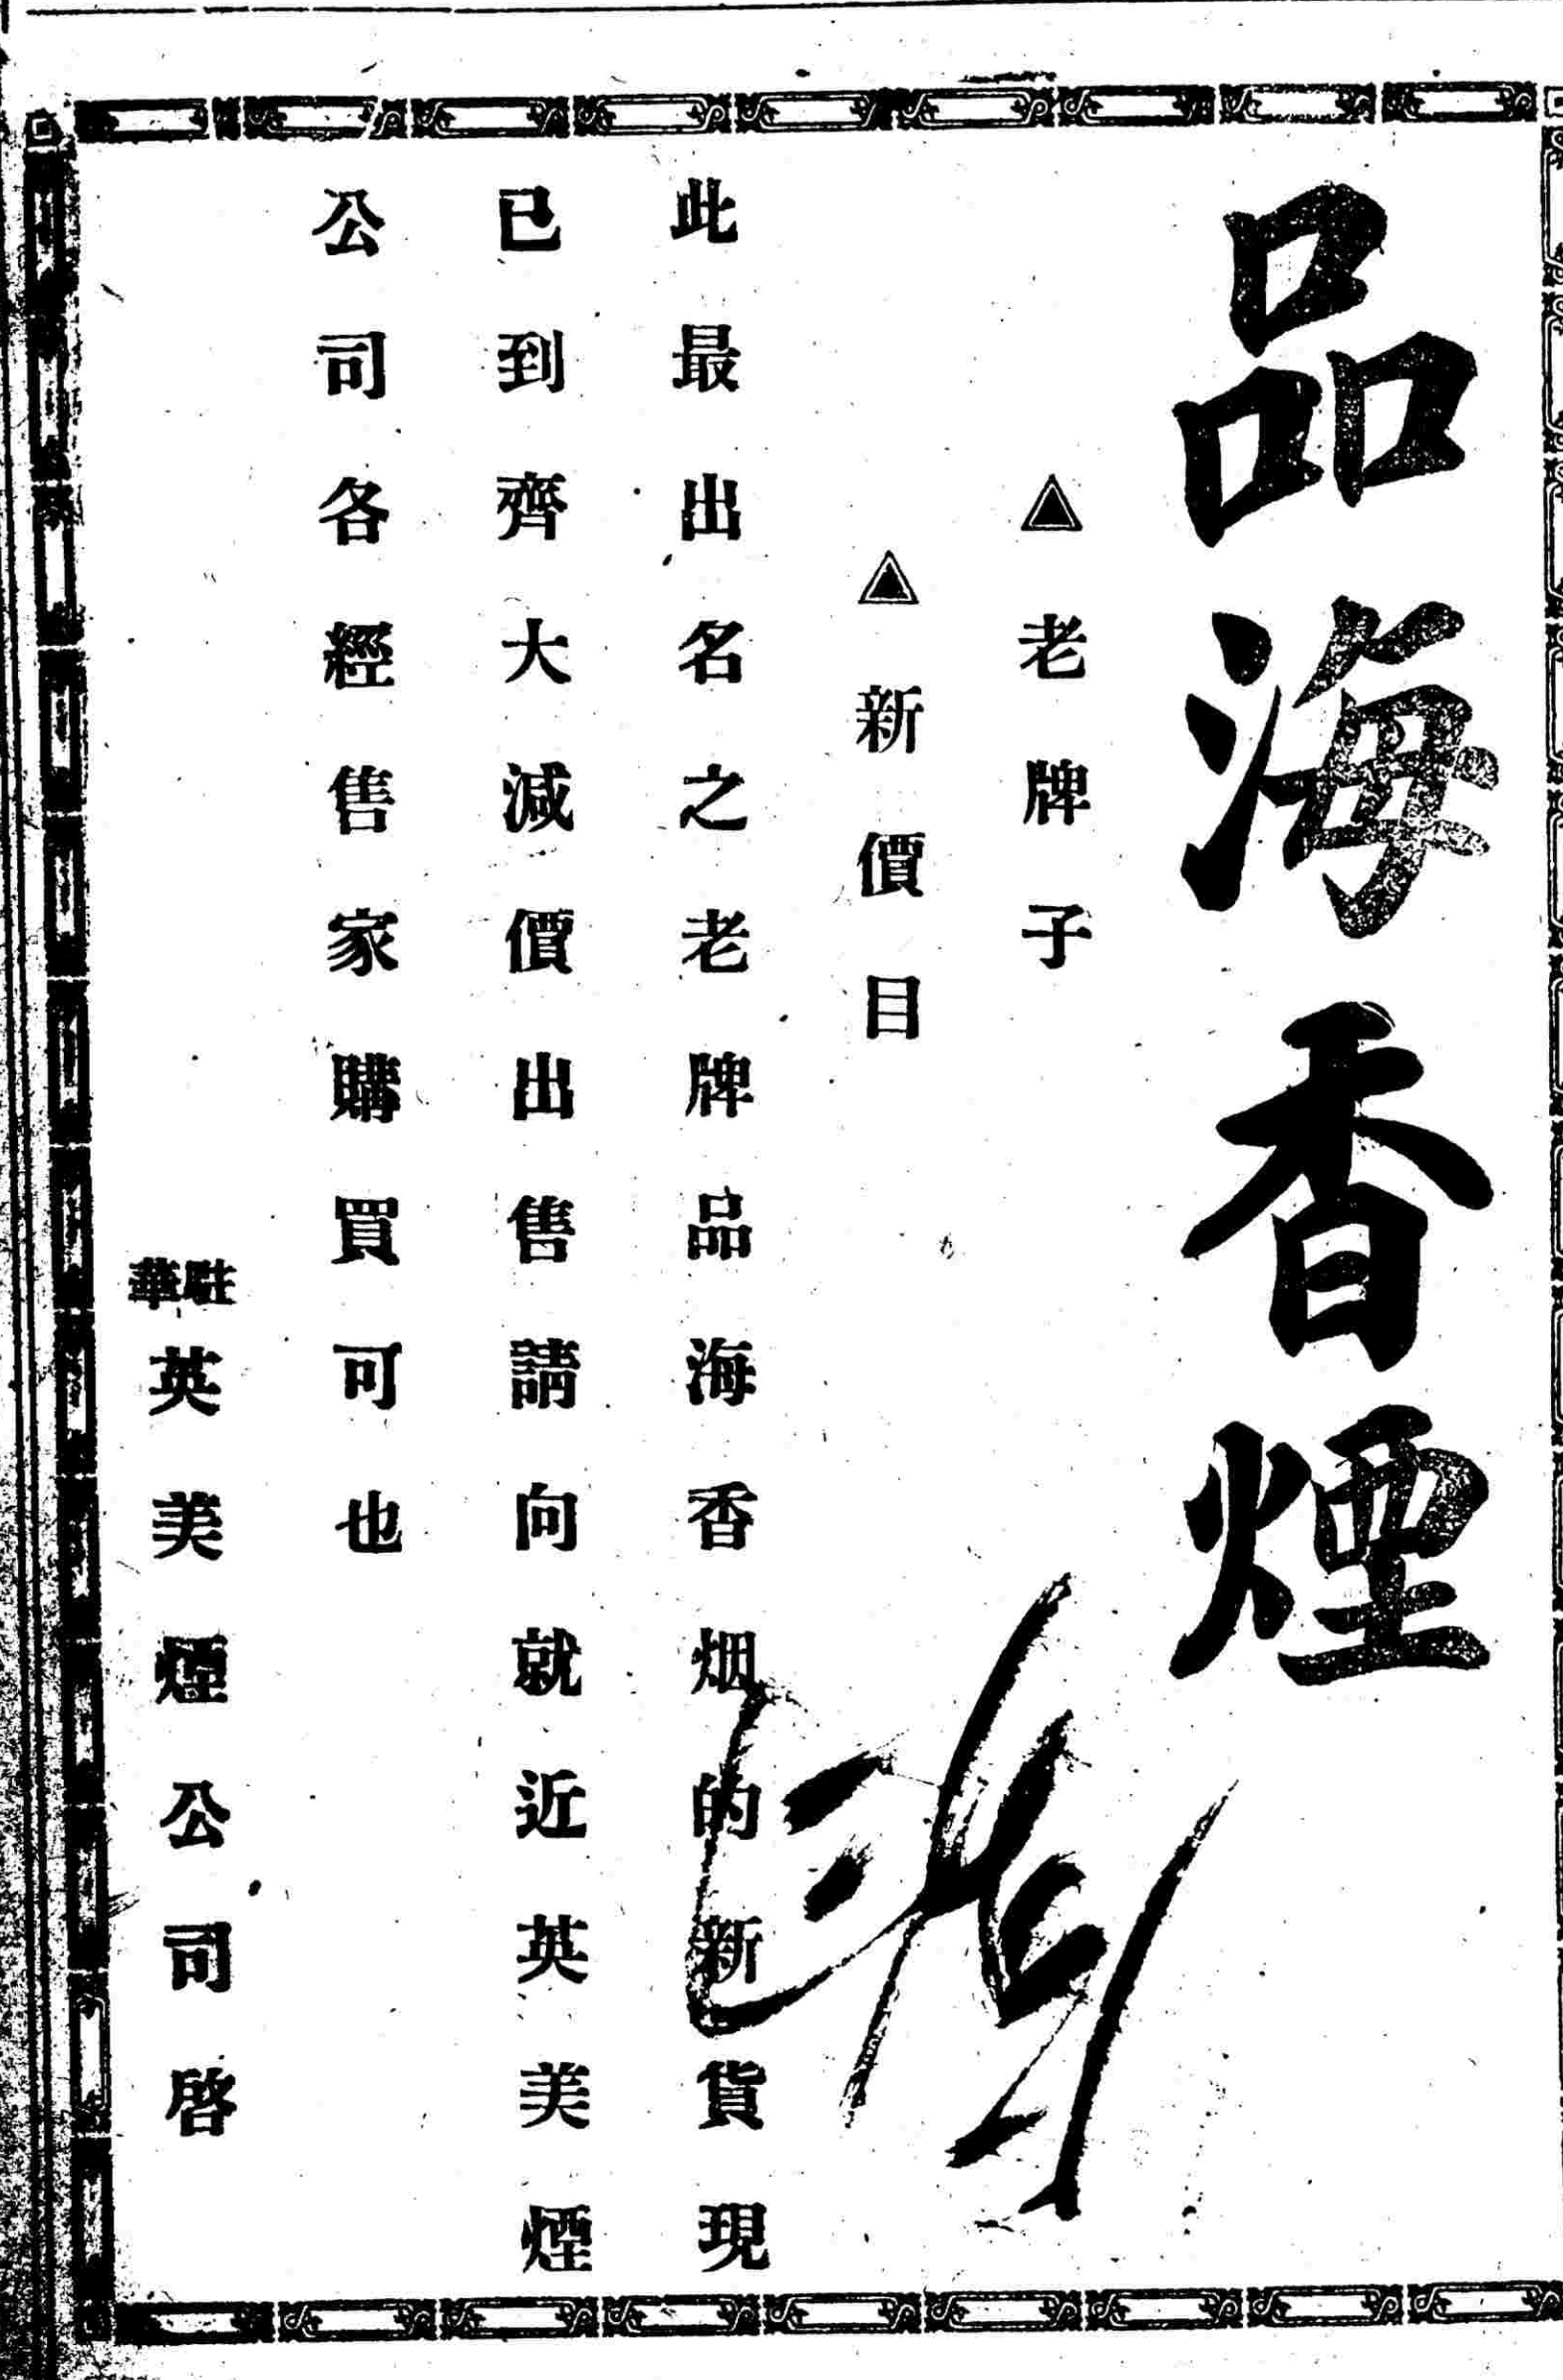 品海香煙
▲老牌子
▲新價目
此最出名之老牌品海香烟的新貨現
已到齊大減價出售請向就近英美煙
公司各經售家購買可也
駐華英美煙公司啓